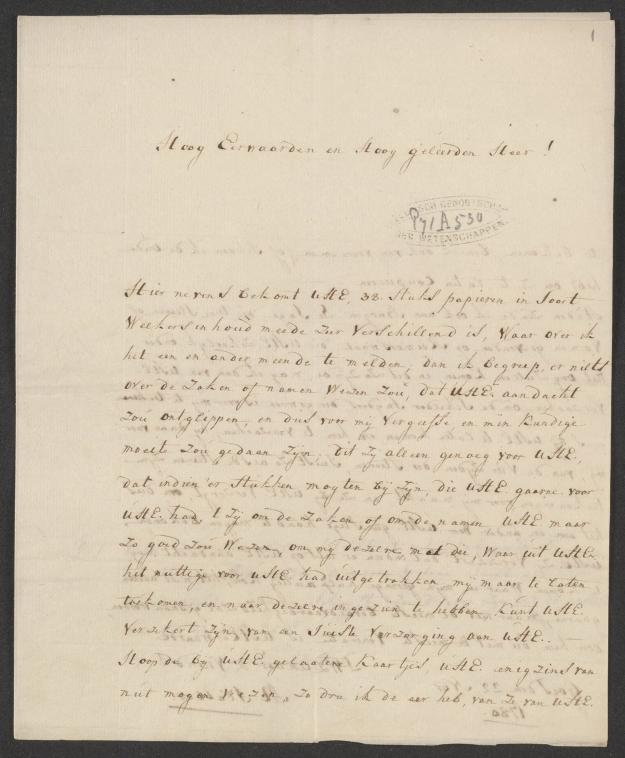 1
Hoog Eerwaarden en Hoog geleerden Heer!
P71A530
DER WETENSCHAPPEN
Hier nevens bekomt UHE, 32. Stuks papieren in Soort
Welkers inhoud meede zeer verschillend is, Waar over ik
het een en ander meende te melden, dan ik begreep, er niets
over de Zaken of namen Wezen Zou, dat UHE. aandacht
Zou ontglippen, en dus voor my vergeefse, en min kundige
moeite Zou gedaan Zyn. Dit Zy alleen genoeg voor UHE,
dat indien er Stukken mogten by Zyn, die UHE. gaarne voor
UHE. had, 't Zy om de Zaken, of om de namen UHE maar
Zo goed Zou Wezen, om my dezelve met die, Waar uit UHE
het nuttige voor UHE had uitgetrokken, my maar te laten
toekomen, en naar dezelve ingezien te hebben kunt UHE.
Verzekert Zyn, van een Juiste Verzorging aan UHE. –
Hoop de by UHE. gelaatene Kaartjes UHE. enegzins van
nut mogen Wezen, Zo dra ik de eer heb, van Ze van UHE.